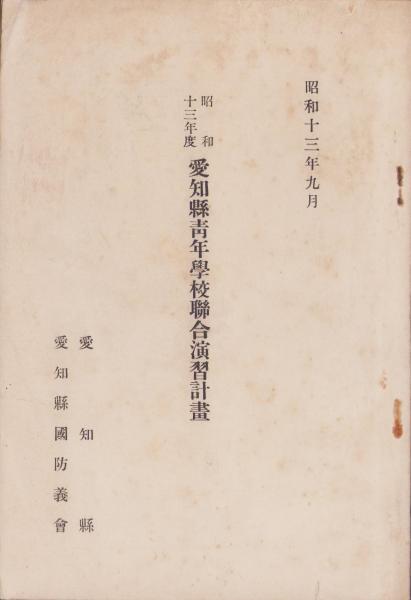 昭和十三年九月
昭和
十三年度
愛知縣靑年學校聯合演習計畫
愛知縣
愛知縣國防義會